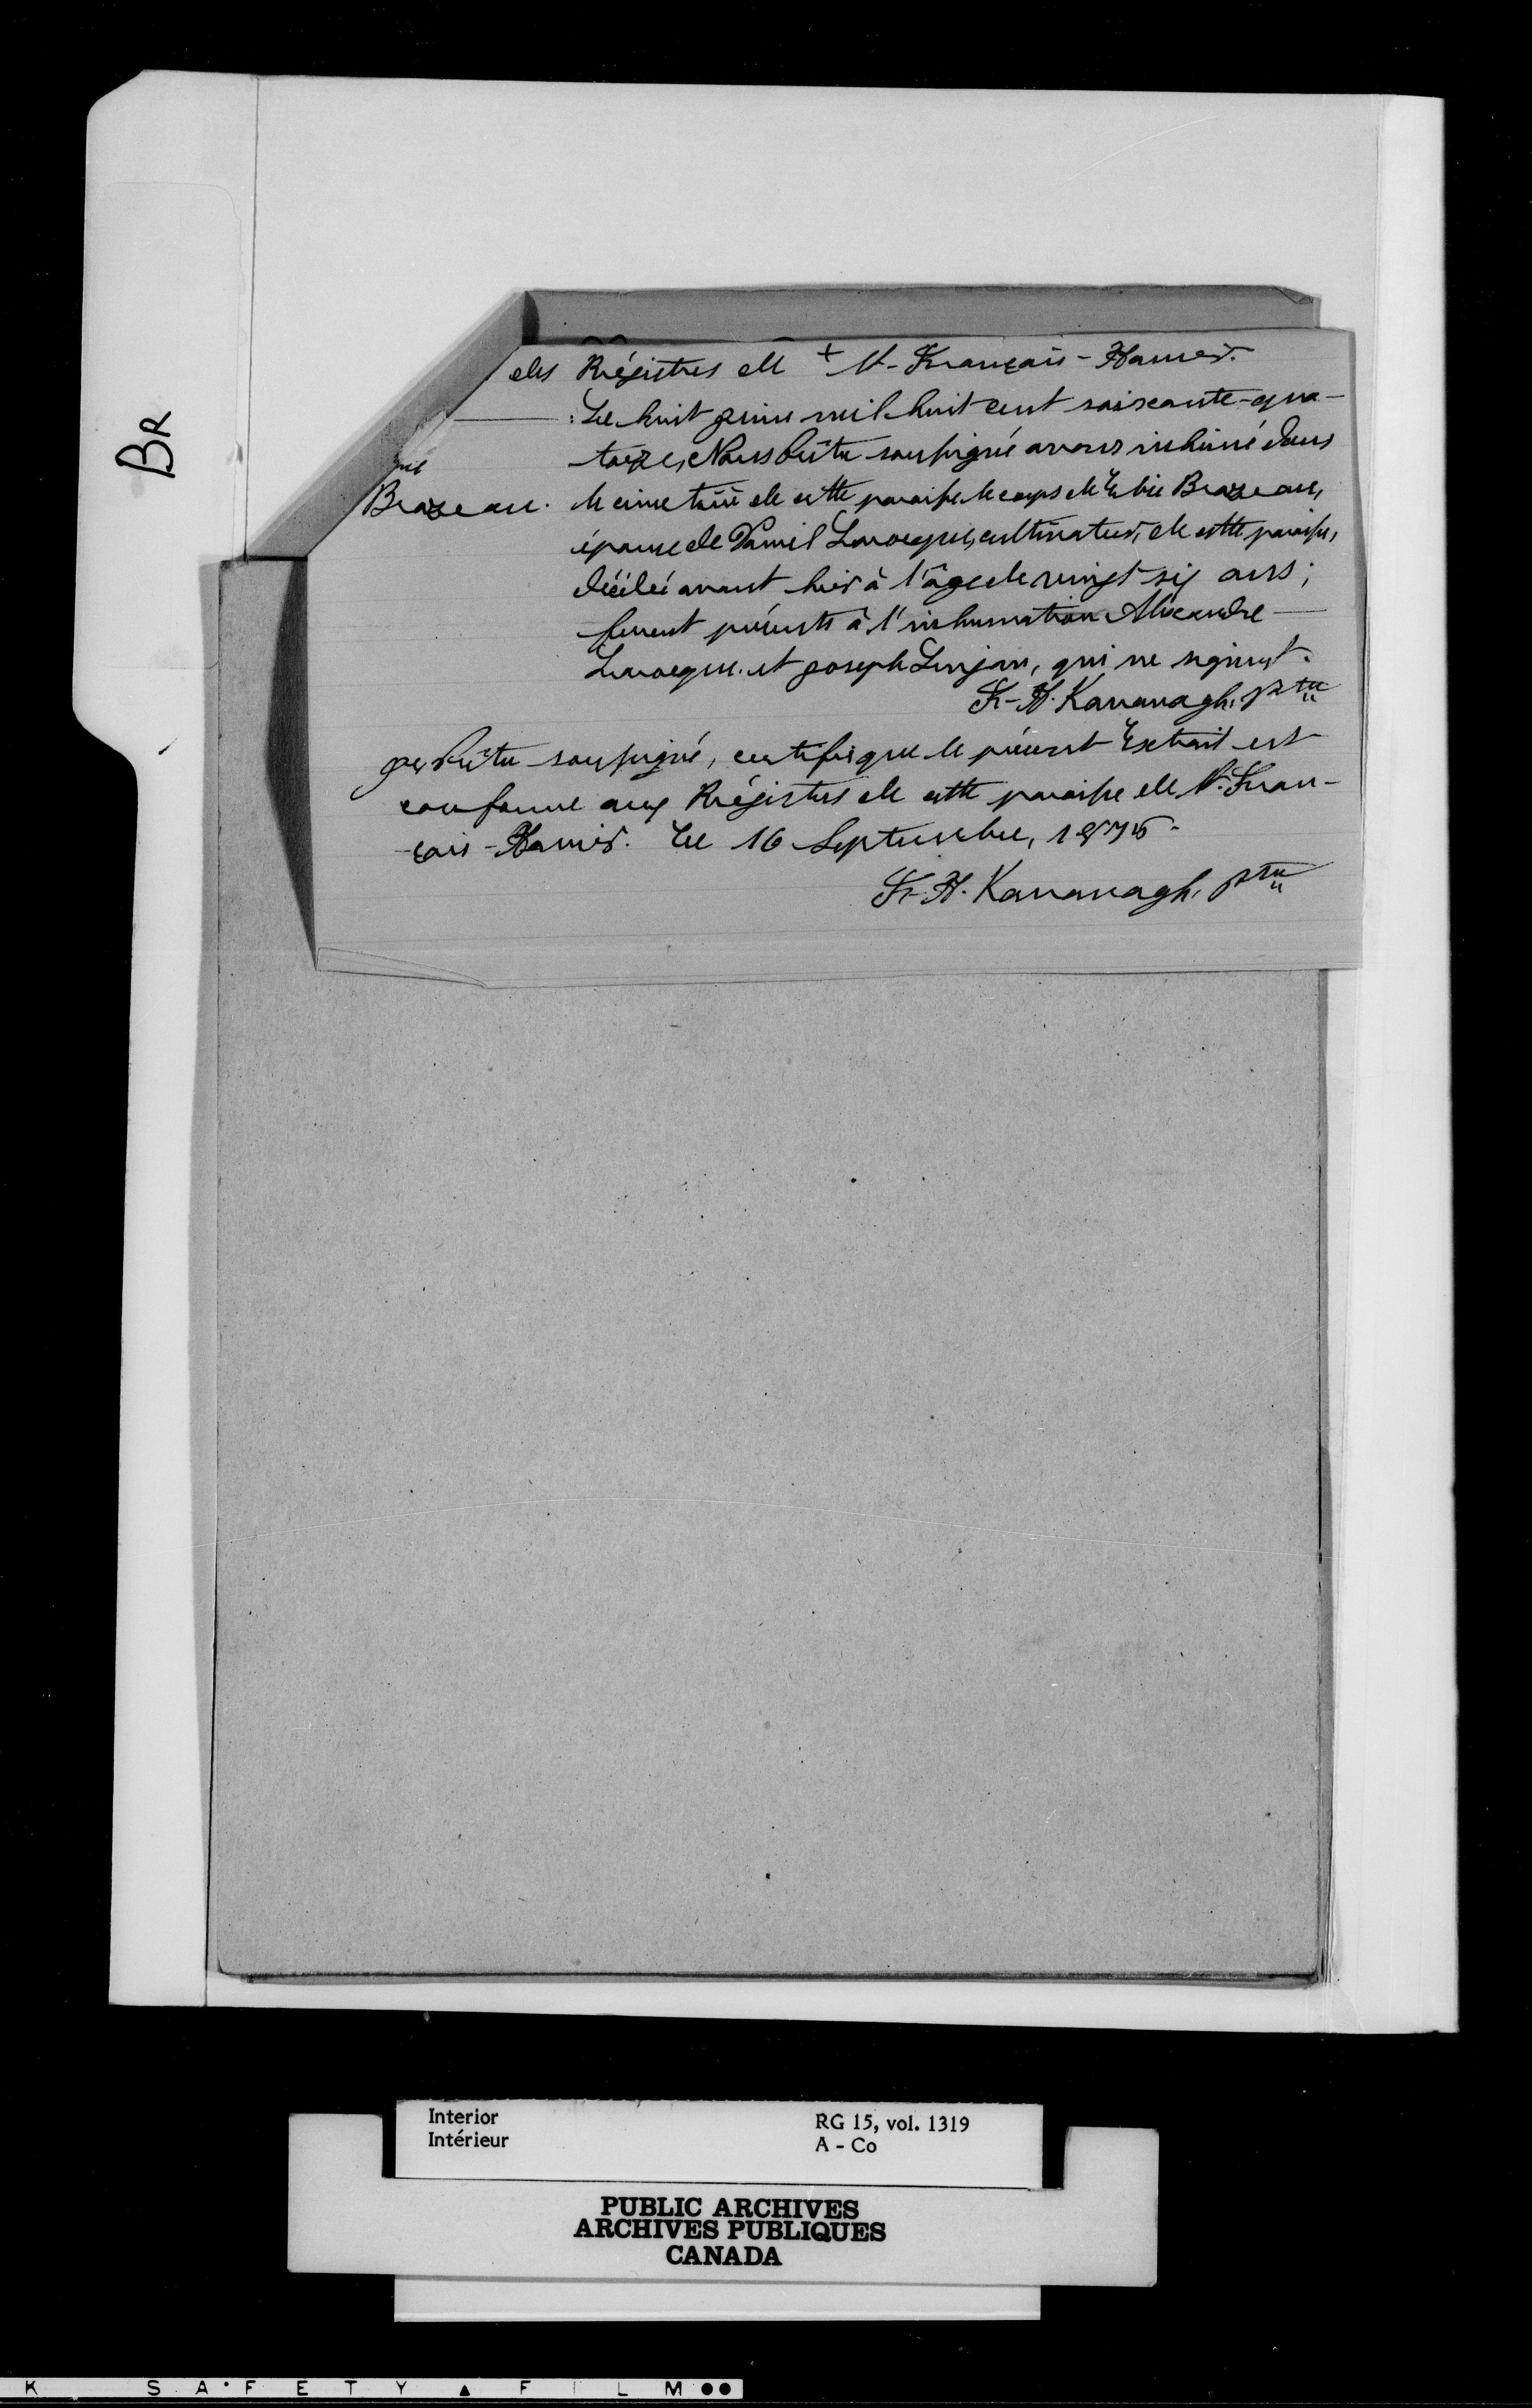 BR
des Régistres de + St-François-Xavier.
Le huit juin mil-huit cent soixante-qua-
torze, Nous Prêtre soussigné avons inhumé dans
Brazeau. le cimetière de cette paroisse le corps de Brazeau,
épouse de Daniel Larocque, cultivateur, de cette paroisse,
décédée avant hier à l'âge de vingt six ans;
furent présents à l'inhumation Alexandre
Larocque et Joseph, qui ne signent.
Fr-X. Kavanagh, Ptre
Je, Prêtre soussigné, certifie que le présent Extrait est
conforme aux Régistres de cette paroisse de St. Fran-
çois-Xavier. Ce 16 Septembre, 1875.
Fr. X. Kavanagh, Ptre
Interior
Intérieur
RG 15, vol. 1319
A - Co
PUBLIC ARCHIVES
ARCHIVES PUBLIQUES
CANADA
K SAFETY ▲ FILM ●●